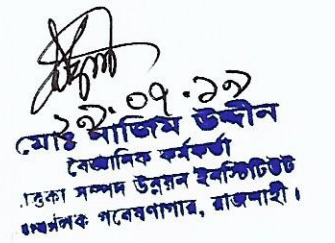 ২৯.০৭.১৯
মোঃ নাজিম উদ্দীন
বৈজ্ঞানিক কর্মকর্তা
মৃত্তিকা সম্পদ উন্নয়ন ইনস্টিটিউট
গবেষণাগার, রাজশাহী।